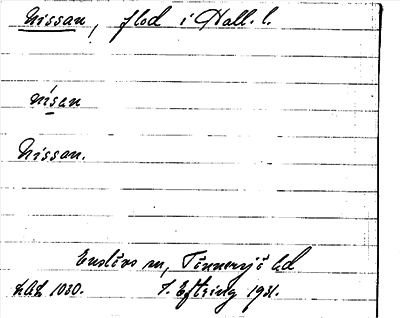 Nissan, flod i Hall. l.
nisan
Nissan.
Enslövs sn, Tönnersjö hd
LAL 1030. J. Eftring 1931.